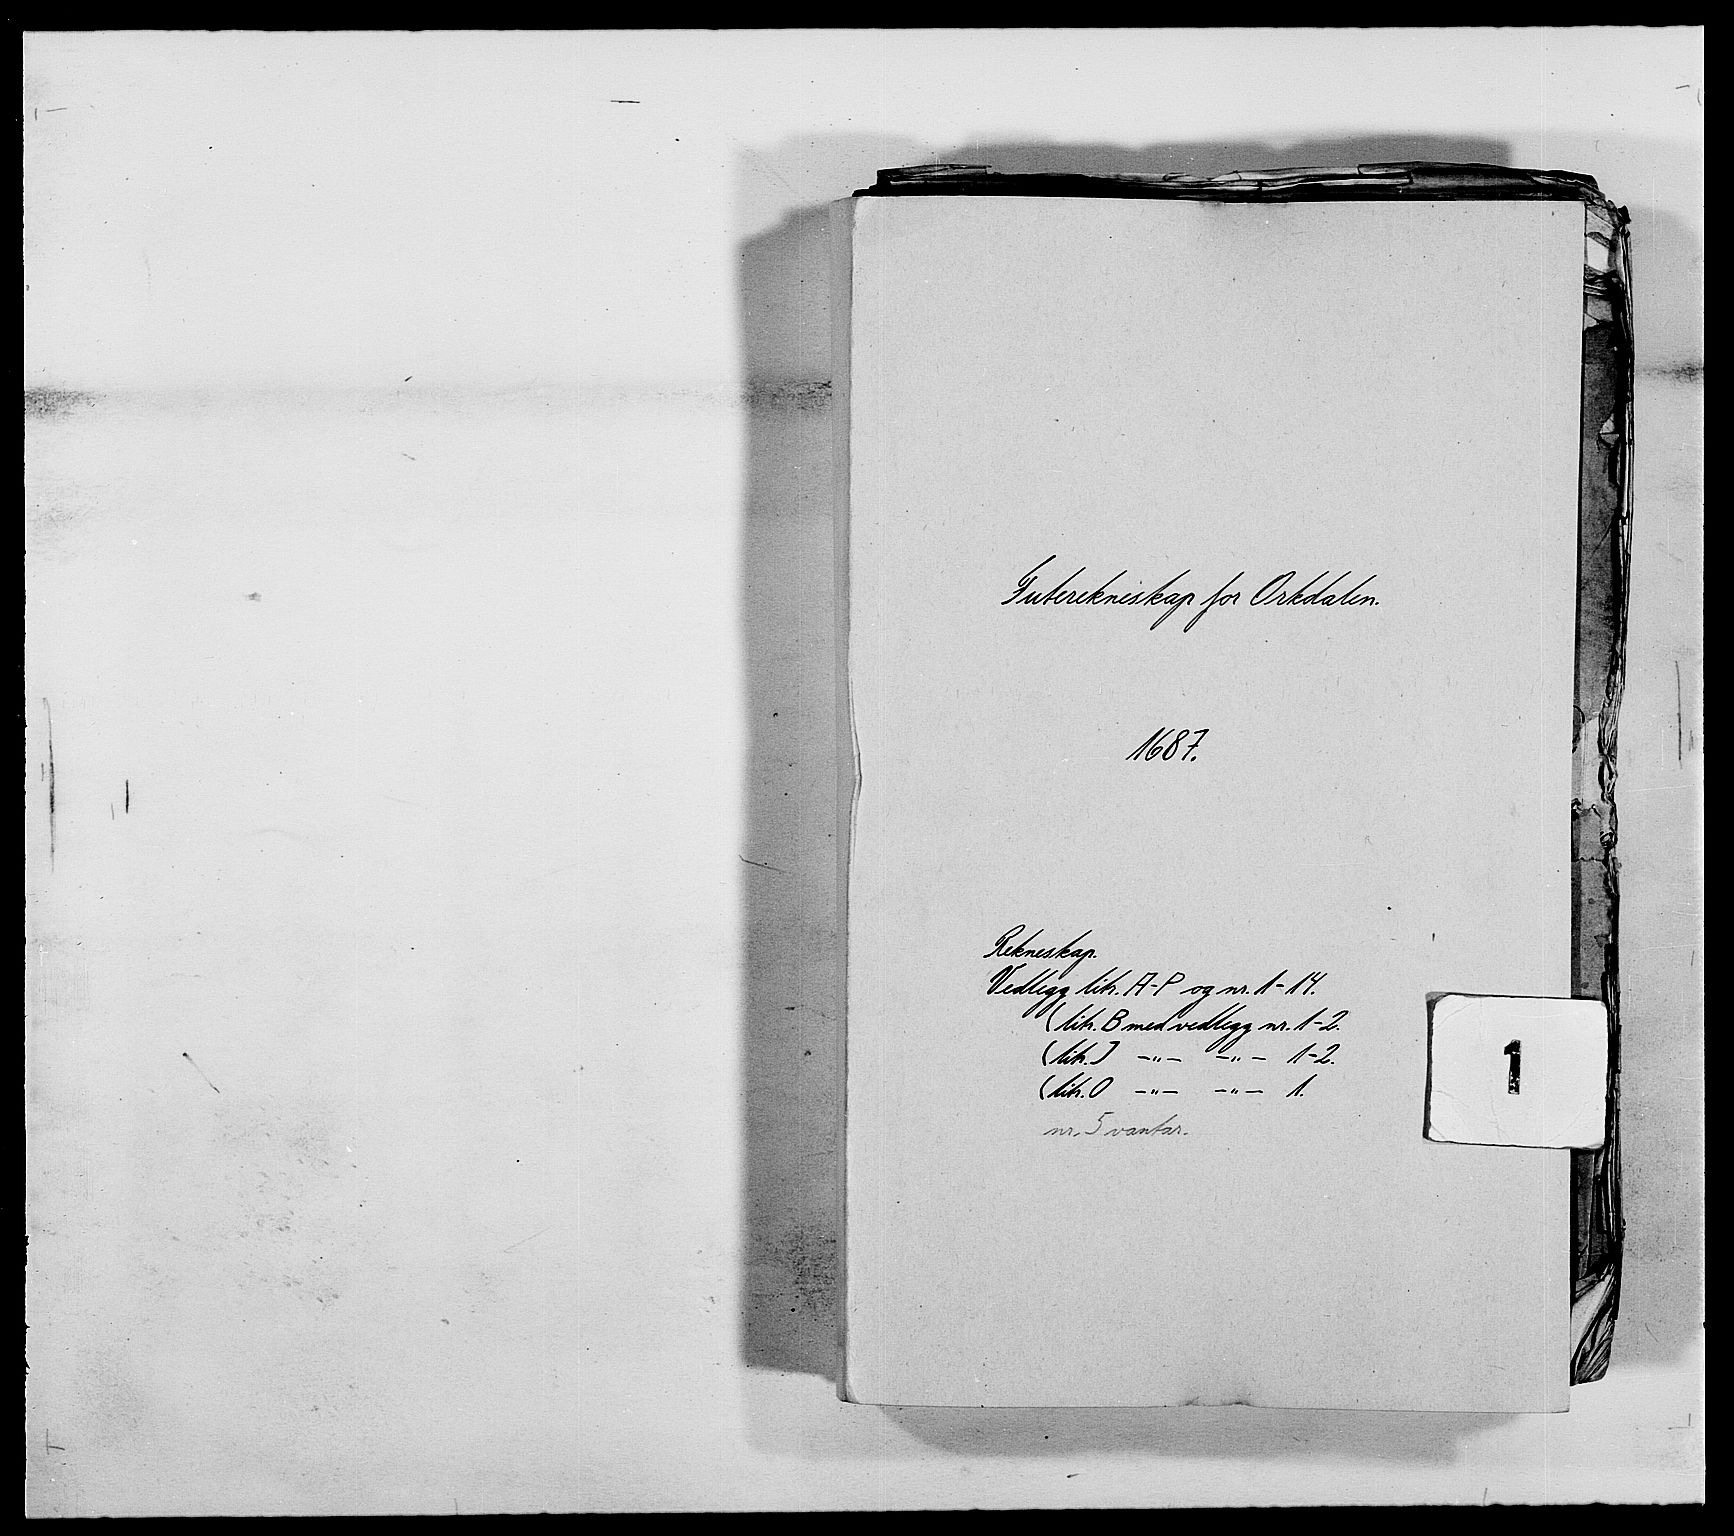 Futerekneskap for Orkdalen.
1687.
Rekneskap.
Vedlegg litr. A-P og nr. 1-14.
(litr. B med vedlegg nr. 1-2.
(litr. J -"- -"- 1-2.
(litr. O -"- -"- 1.
nr. 5 vantar.
1